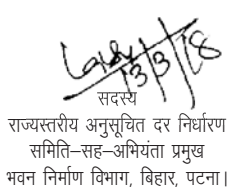 13/3/18
सदस्य
राज्यस्तरीय अनुसूचित दर निर्धारण
समिति–सह–अभियंता प्रमुख
भवन निर्माण विभाग, बिहार, पटना।